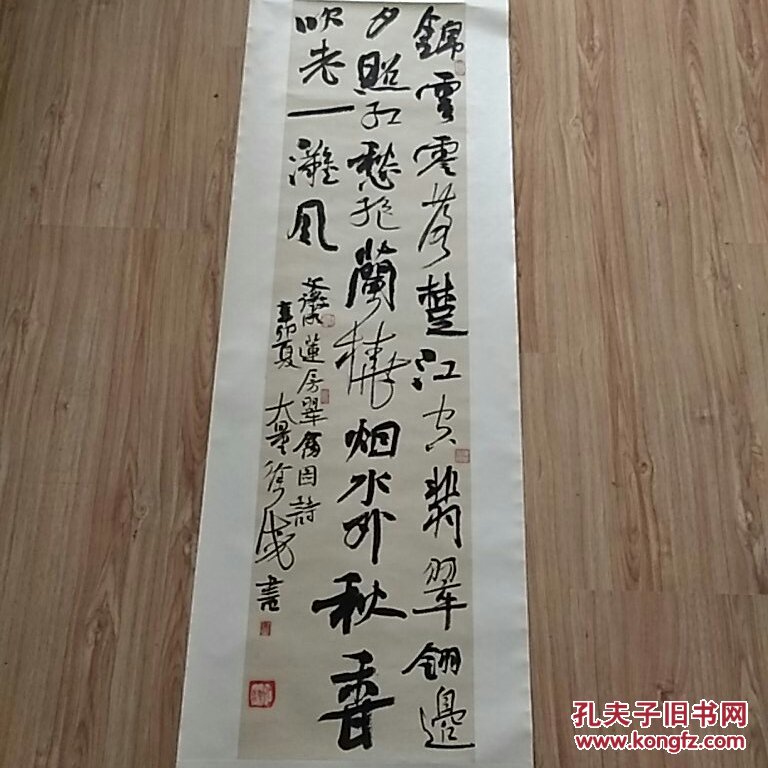 錦雲零落楚江空翡翠翎邊
夕照紅愁絶蘭橈烟水外秋香
吹老一灘風
蓮房翠禽圖詩
辛卯夏
書
孔夫子旧书网
www.kongfz.com